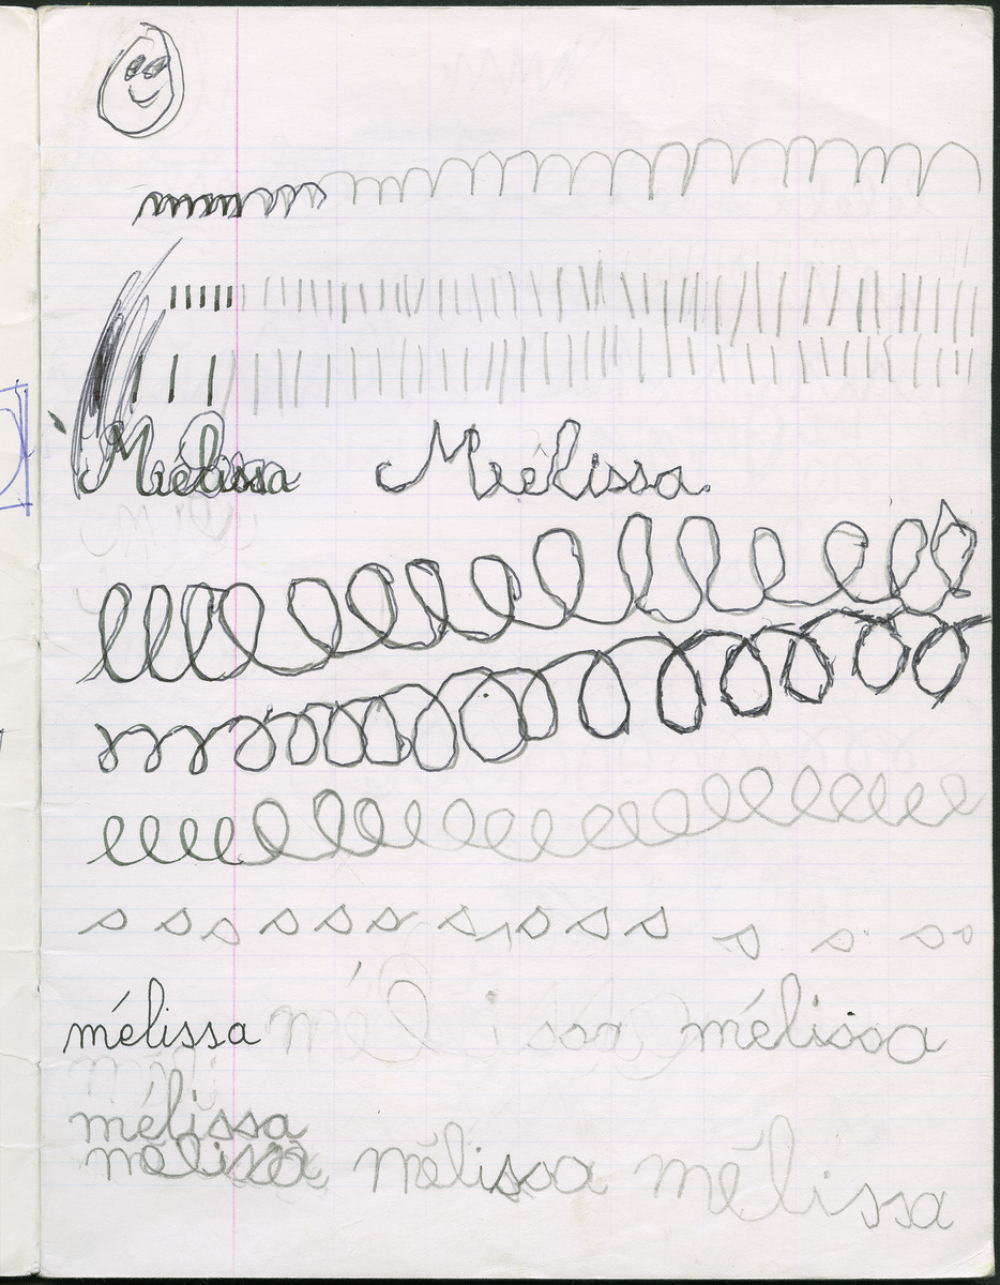 Mélissa Mélissa
s s s s s s s s s s s s s s s
mélissa mélissa mélissa
méli
mélissa
mélissa mélissa mélissa